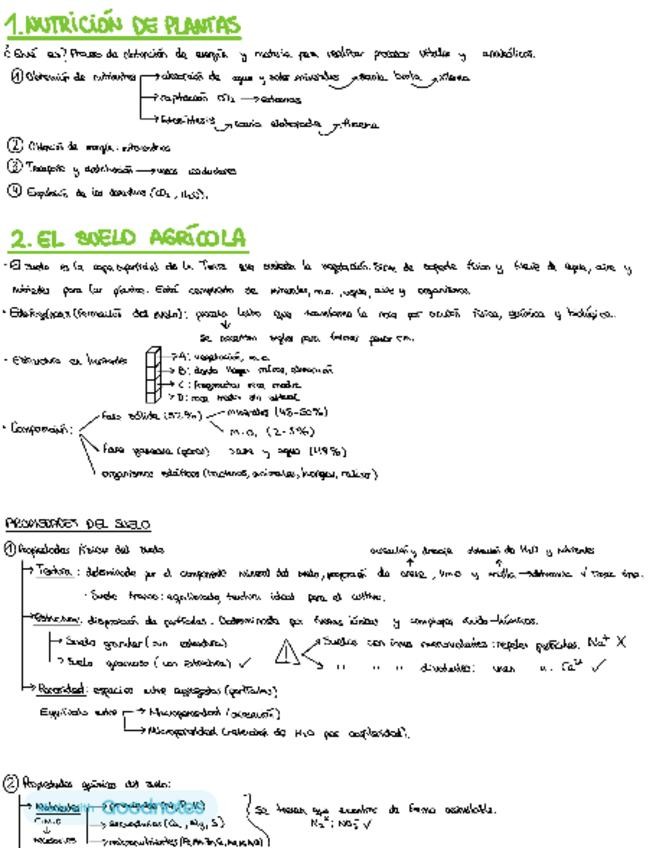 1. NUTRICIÓN DE PLANTAS
¿Qué es? Proceso de obtención de energía y materia para realizar procesos vitales y anabólicos.
① Obtención de nutrientes → absorción de agua y sales minerales → savia bruta → xilema
→ captación CO₂ → estomas
→ fotosíntesis → savia elaborada → floema
② Obtención de energía: mitocondrias
③ Transporte y distribución → vasos conductores
④ Expulsión de los desechos (CO₂, H₂O).
2. EL SUELO AGRÍCOLA
· El suelo es la capa superficial de la Tierra que sustenta la vegetación. Sirve de soporte físico y fuente de agua, aire y
nutrientes para las plantas. Está compuesto de minerales, m.o., agua, aire y organismos.
· Edafogénesis (formación del suelo): proceso lento que transforma la roca por acción física, química y biológica.
Se necesitan siglos para formar pocos cm.
· Estructura en horizontes → A: vegetación, m.o.
→ B: donde llegan raíces,
→ C: fragmentos roca madre
→ D: roca madre sin alterar
· Composición: Fase sólida (52%) minerales (48-50%)
M.O. (2-5%)
Fase gaseosa (poros) aire y agua (48%)
organismos edáficos (bacterias, animales, hongos,
PROPIEDADES DEL SUELO
① Propiedades físicas del suelo
aireación y drenaje retención de H₂O y nutrientes
→ Textura: determinada por el componente mineral del suelo, proporción de arena, limo y arcilla →
· Suelo franco: equilibrado, textura ideal para el cultivo.
→ Estructura: disposición de partículas. Determinada por fuerzas iónicas y complejos arcillo-húmicos.
→ Suelo granular (sin estructura)
→ Suelo grumoso (con estructura) ✓
⚠ Suelos con iones monovalentes: repelen partículas. Na⁺ X
" " " divalentes: unen " . Ca²⁺ ✓
→ Porosidad: espacios entre agregados (partículas)
Equilibrio entre → Macroporosidad (aireación)
→ Microporosidad (retención de H₂O por capilaridad).
② Propiedades químicas del suelo:
→ Nutrientes → primarios (N, P, K)
→ secundarios (Ca, Mg, S)
→ micronutrientes
Se tienen que encontrar de forma asimilable.
Goodnotes